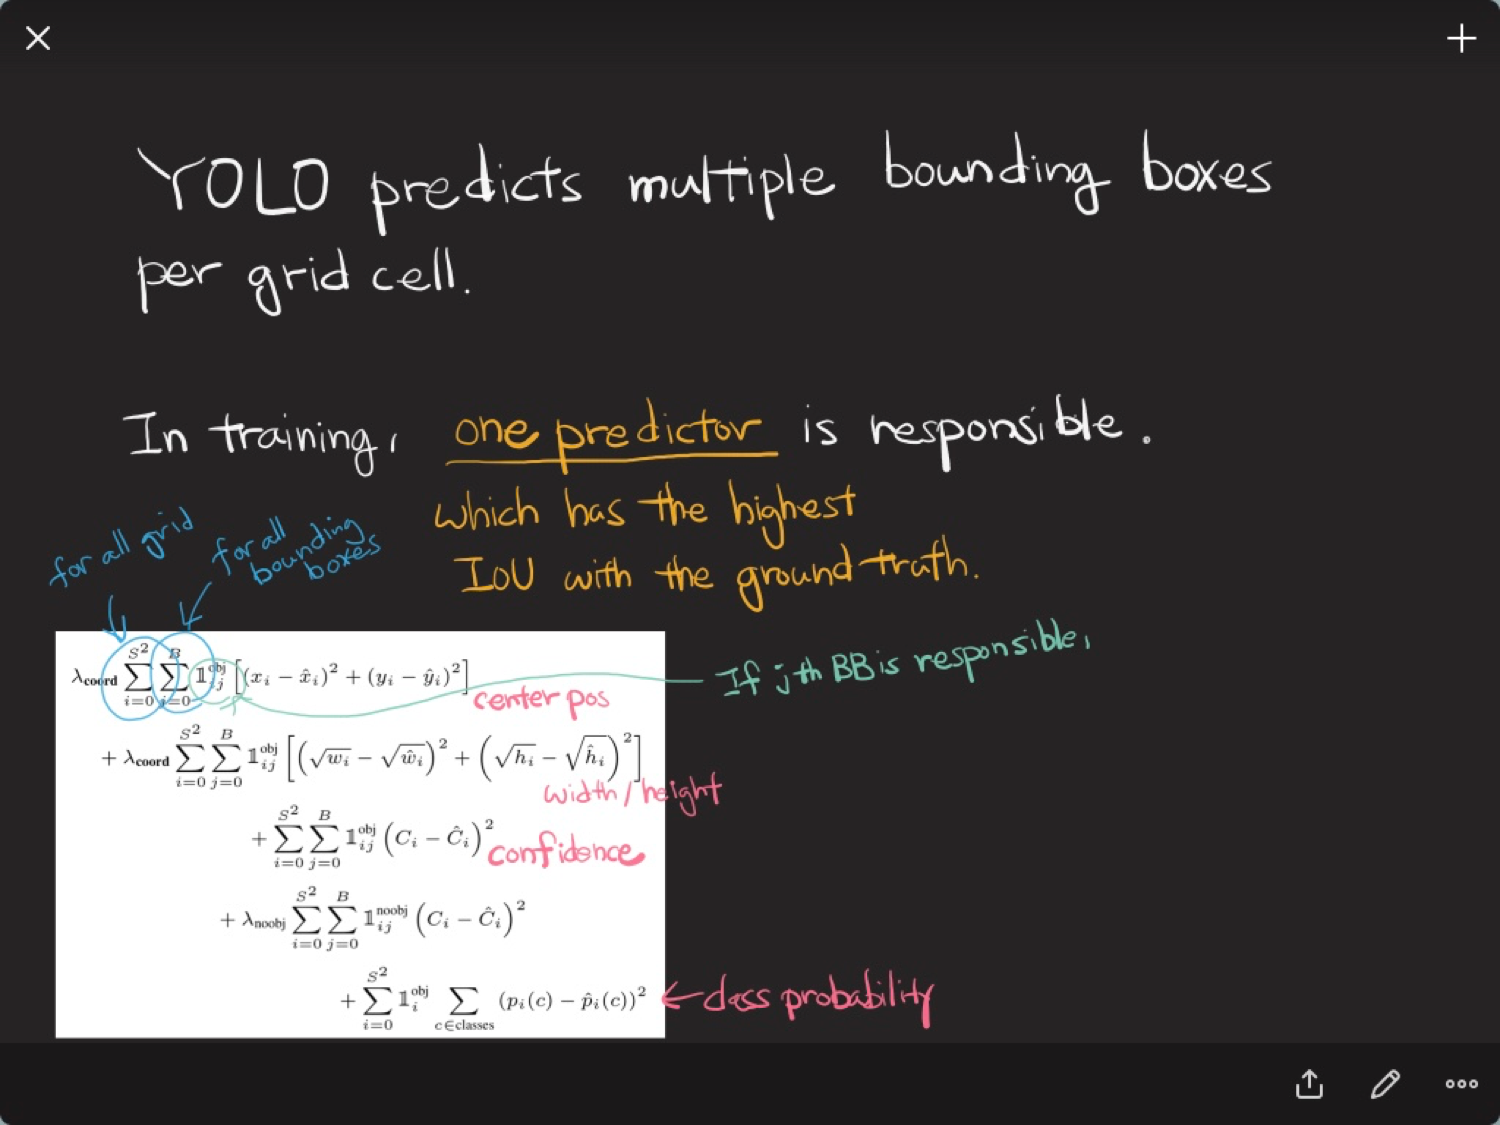 YOLO predicts multiple bounding boxes
per grid cell.
In training, one predictor is responsible.
which has the highest
IoU with the ground truth.
for all grid
for all
bounding
boxes
If jth BB is responsible,
λ_coord ∑_{i=0}^{S²} ∑_{j=0}^{B} 𝟙_{ij}^{obj} [(x_i − x̂_i)² + (y_i − ŷ_i)²]
center pos
+ λ_coord ∑_{i=0}^{S²} ∑_{j=0}^{B} 𝟙_{ij}^{obj} [(√w_i − √ŵ_i)² + (√h_i − √ĥ_i)²]
width/height
+ ∑_{i=0}^{S²} ∑_{j=0}^{B} 𝟙_{ij}^{obj} (C_i − Ĉ_i)²
confidence
+ λ_noobj ∑_{i=0}^{S²} ∑_{j=0}^{B} 𝟙_{ij}^{noobj} (C_i − Ĉ_i)²
+ ∑_{i=0}^{S²} 𝟙_i^{obj} ∑_{c∈classes} (p_i(c) − p̂_i(c))²
← class probability